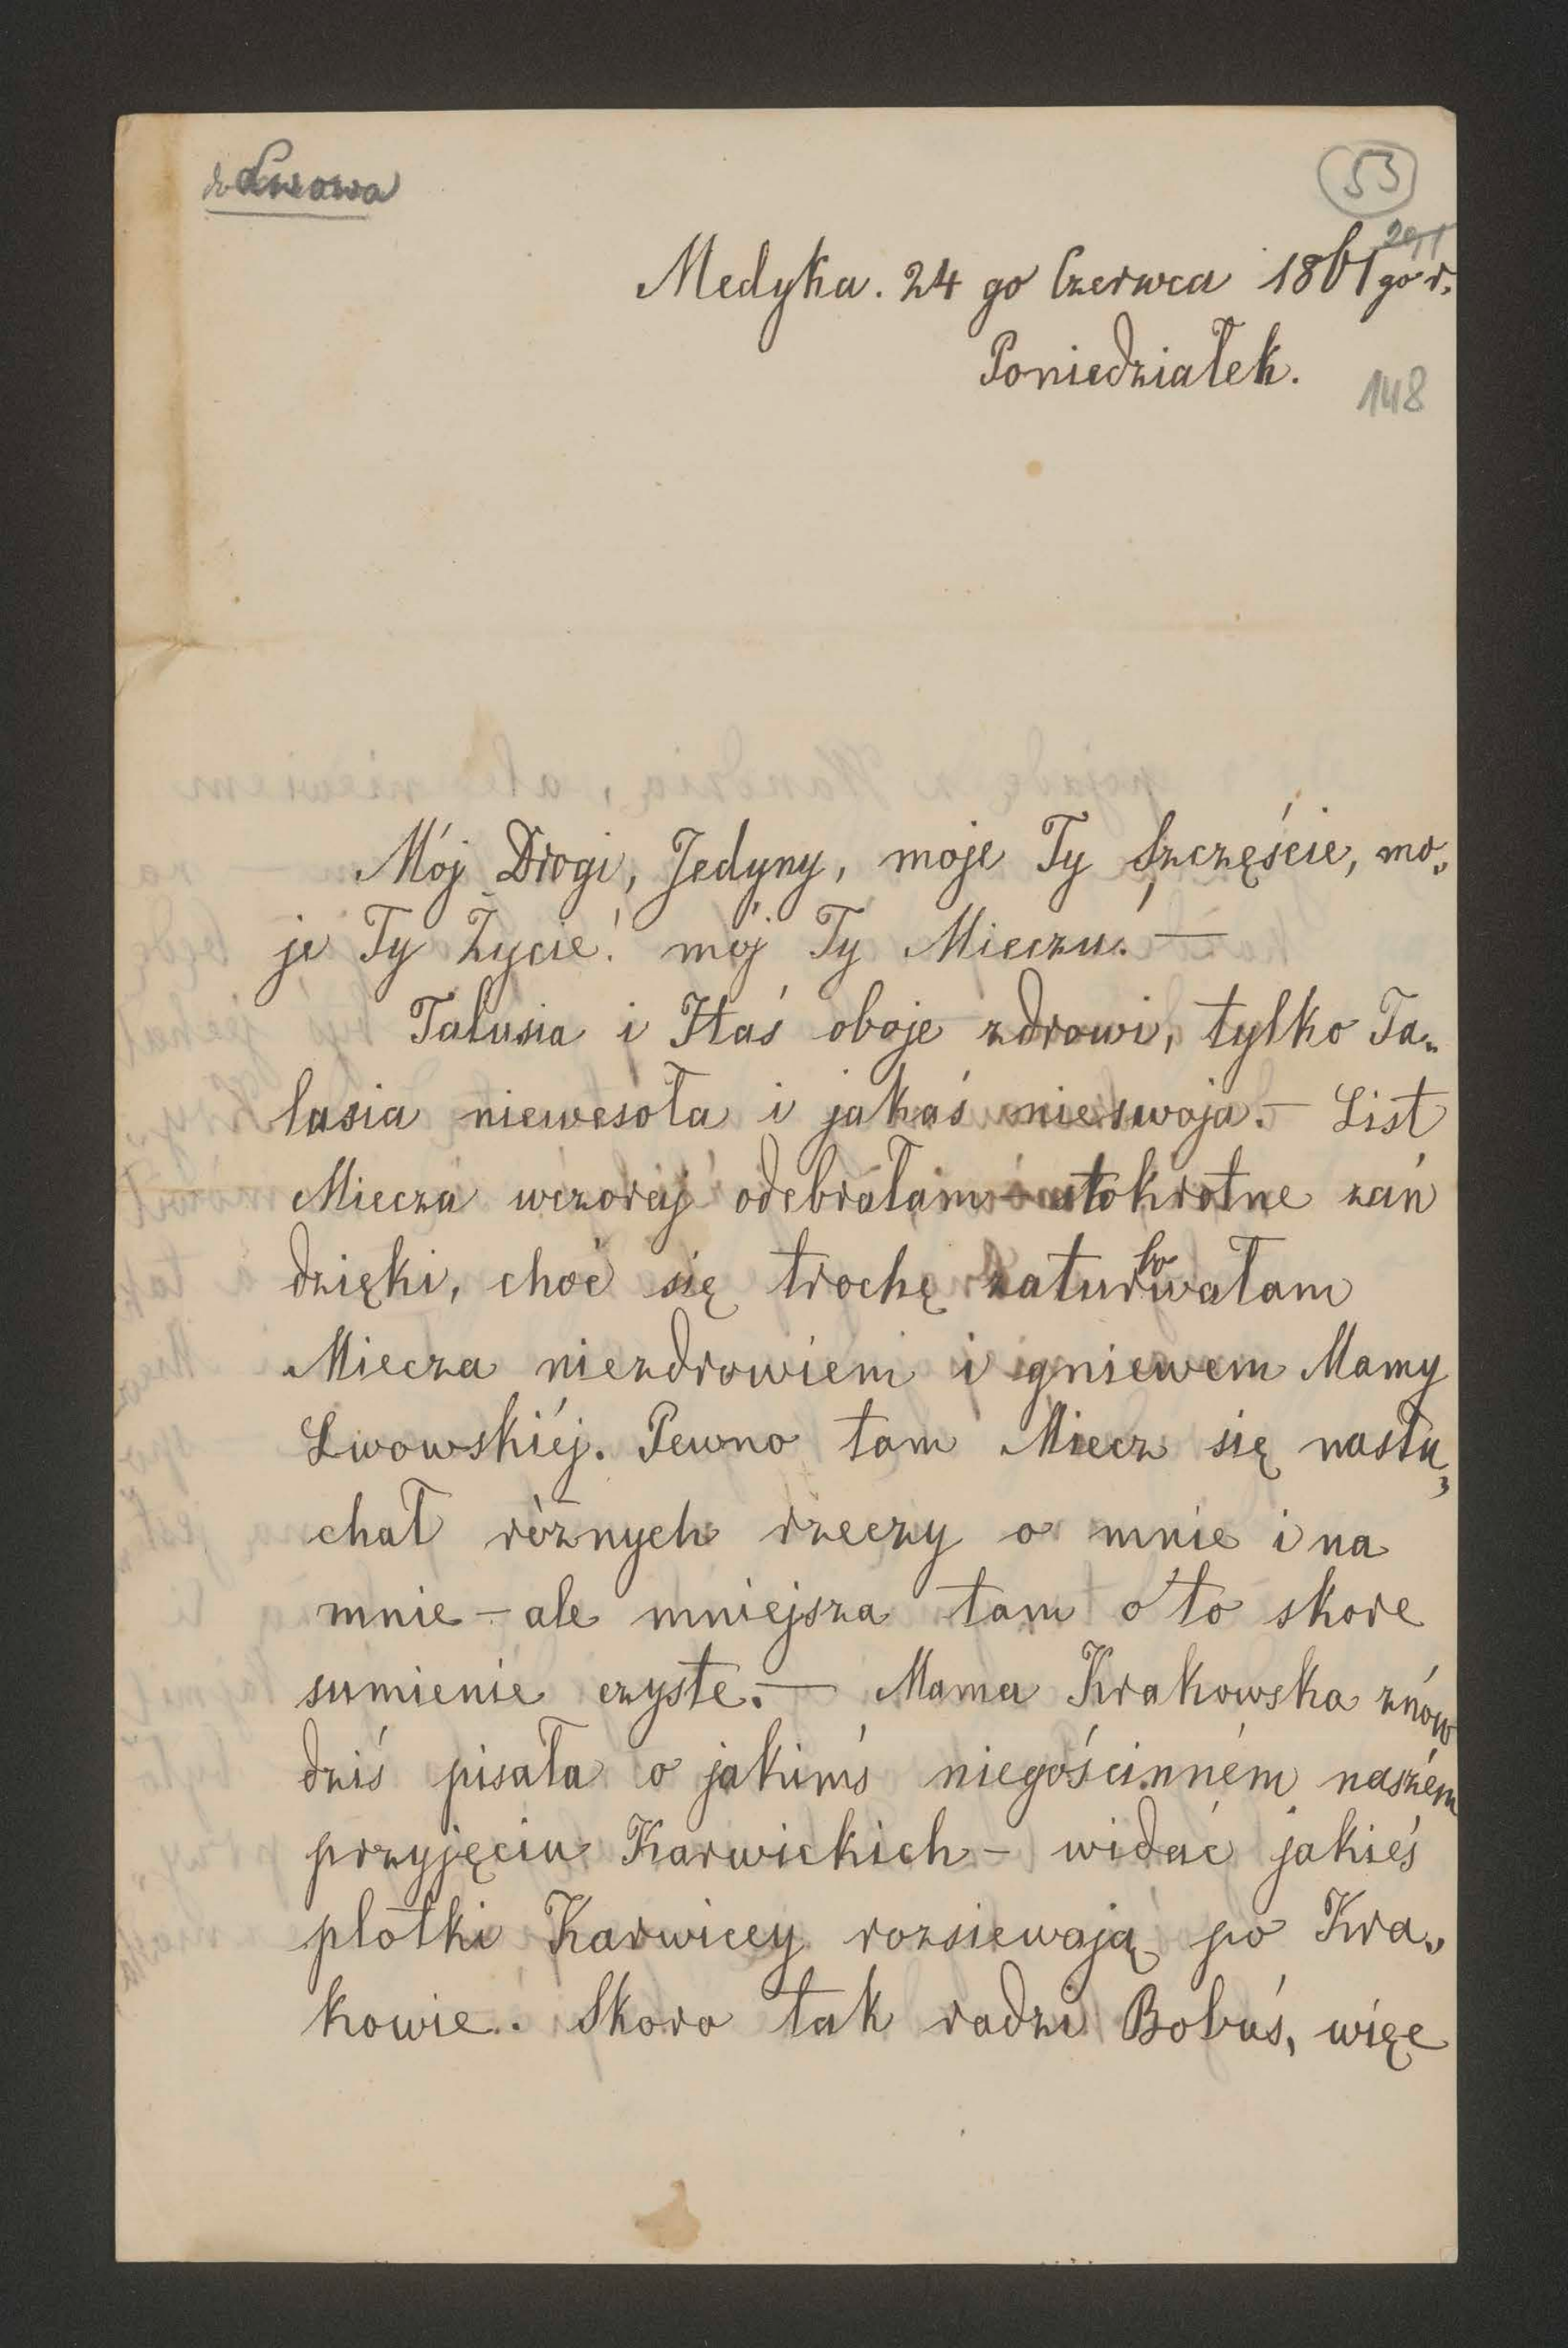 do Lwowa
53
291
Medyka. 24 go Czerwca 1861 go r.
Poniedziałek.
148
Mój Drogi, Jedyny, moje Ty Szczęście, mo„
je Ty Życie! mój Ty Mieczu. —
Talusia i Staś oboje zdrowi, tylko Ta„
lusia niewesoła i jakaś nieswoja. — List
Miecza wczoraj odebrałam stokrotne zań
dzięki, choć się trochę zaturbowałam
Miecza niezdrowiem i gniewem Mamy
Lwowskiéj. Pewno tam Miecz się nasłu„
chał różnych rzeczy o mnie i na
mnie — ale mniejsza tam o to skore
sumienie czyste. — Mama Krakowska znów
dziś pisała o jakimś niegościnném naszém
przyjęciu Karwickich — widać jakieś
plotki Karwiccy rozsiewają po Kra„
kowie. Skoro tak radzi Bobuś, więc